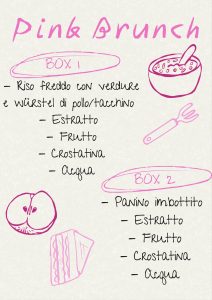 Pink Brunch
BOX 1
- Riso freddo con verdure
e würstel di pollo/tacchino
- Estratto
- Frutto
- Crostatina
- Acqua
BOX 2
- Panino imbottito
- Estratto
- Frutto
- Crostatina
- Acqua